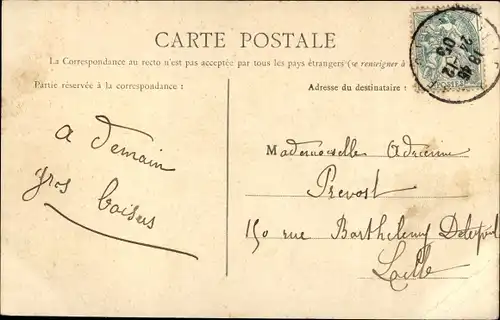 CARTE POSTALE
La Correspondance au recto n'est pas acceptée par tous les pays étrangers (se renseigner à
Partie réservée à la correspondance :
Adresse du destinataire :
POSTES
a demain
gros baisers
Mademoiselle Adrienne
Prevost
150 rue Barthelemy Delespaul
Lille